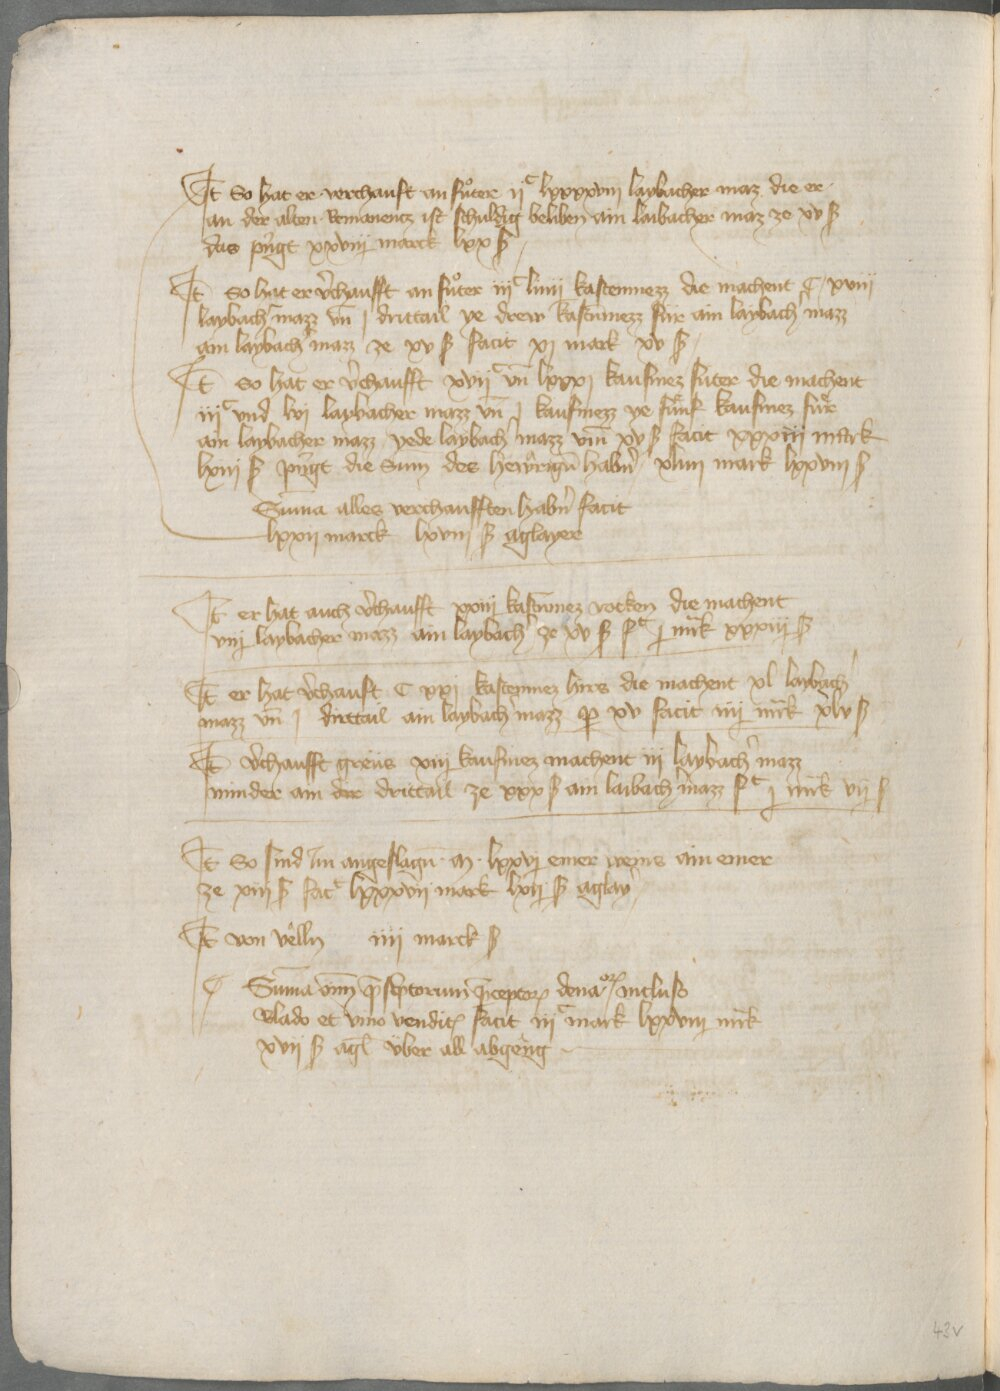 It So hat er verchauft an fůter ijᶜ lxxxxviij laybacher maz die er
an der alten Remanencz ist schuldig beliben ain laibacher maz ze xv ₰
das pringt xxviij marck lxx ₰
It so hat er v̄chaufft an fůter iijᶜ liiij kastenmezz die machent C xviij
laybach̄ mazz vn̄ j drittail ye drew kastnmezz für ain laybach̄ mazz
ain laybach̄ mazz ze xv ₰ facit xj mark xv ₰
It so hat er v̄chaufft xvijᶜ vn̄ lxxxj kaufmez futer die machent
iijᶜ vnd lvj laybacher mazz vn̄ j kaufmezz ye fünf kaufmez für
ain laybacher mazz yede laybach̄ mazz vm̄ xv ₰ facit xxxiij marck
lxiij ₰ pringt die Sum̄ des hewrign̄ habn̄ xliiij mark lxxviij ₰
Sum̄a alles verchaufften habn̄ facit
lxxij marck lxviij ₰ aglayer
It er hat auch v̄chaufft xxiij kastnmez rocken die machent
viij laybacher mazz ain laybach̄ ze xv ₰ fᶜ j mrk xxxiij ₰
It er hat v̄chauft C xxj kastenmez hirs die machent xl laybach̄
mazz vn̄ j drittail ain laybach̄ mazz ꝑ xv facit iiij mrk xlv ₰
It v̄chaufft greiis xiij kaufmez machent iij laybach̄ mazz
minder ain drittail ze xxx ₰ ain laibach̄ mazz fᶜ j mrk vij ₰
It So sind im angeslagn̄ m lxxvj emer weins ain emer
ze xiij ₰ facᵗ lxxxvij mark lxij ₰ aglaȳ
It von vêlln iiij marck ₰
Sum̄a om̄ p̄scptorum p̄ceptoꝝ denaꝝ incluso
blado et vino venditꝭ facit iijᶜ mark lxxviij mrk
xvij ₰ agl̄ über all abgeng
43v